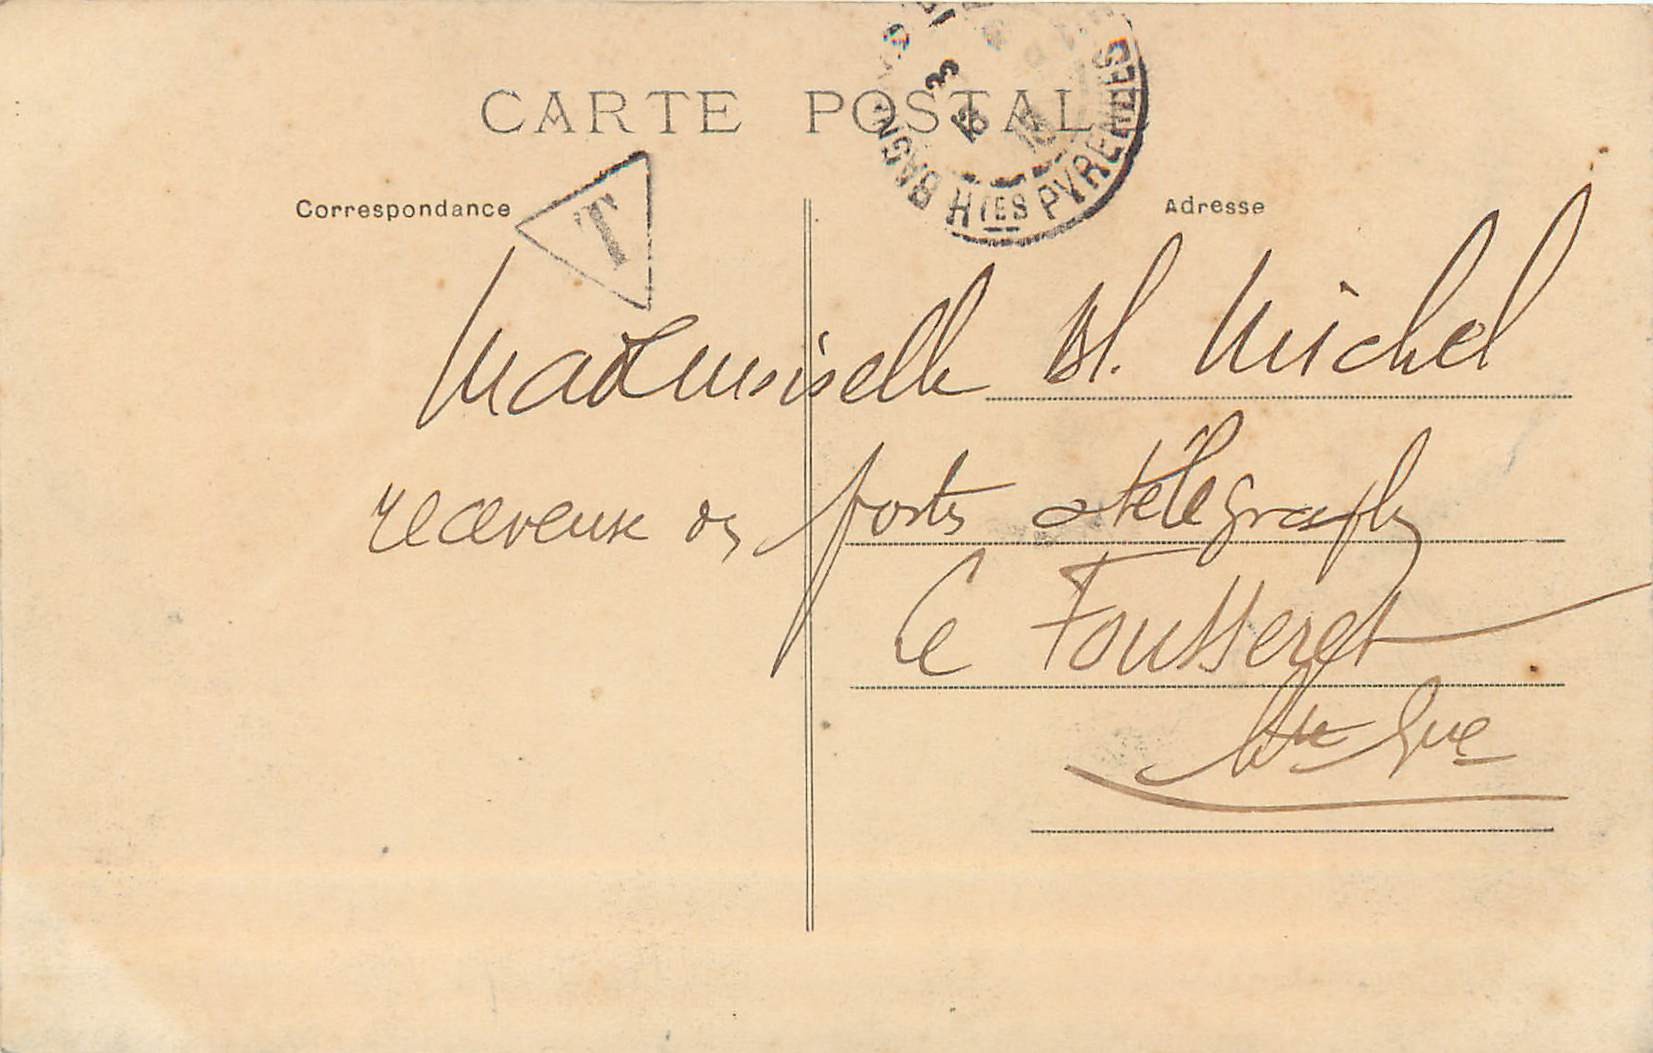 CARTE POSTALE
BAGN HTES PYRENEES
Correspondance
T
Adresse
Mademoiselle M. Michel
receveuse des postes et télégraphes
Le Fousseret
Hte Gne